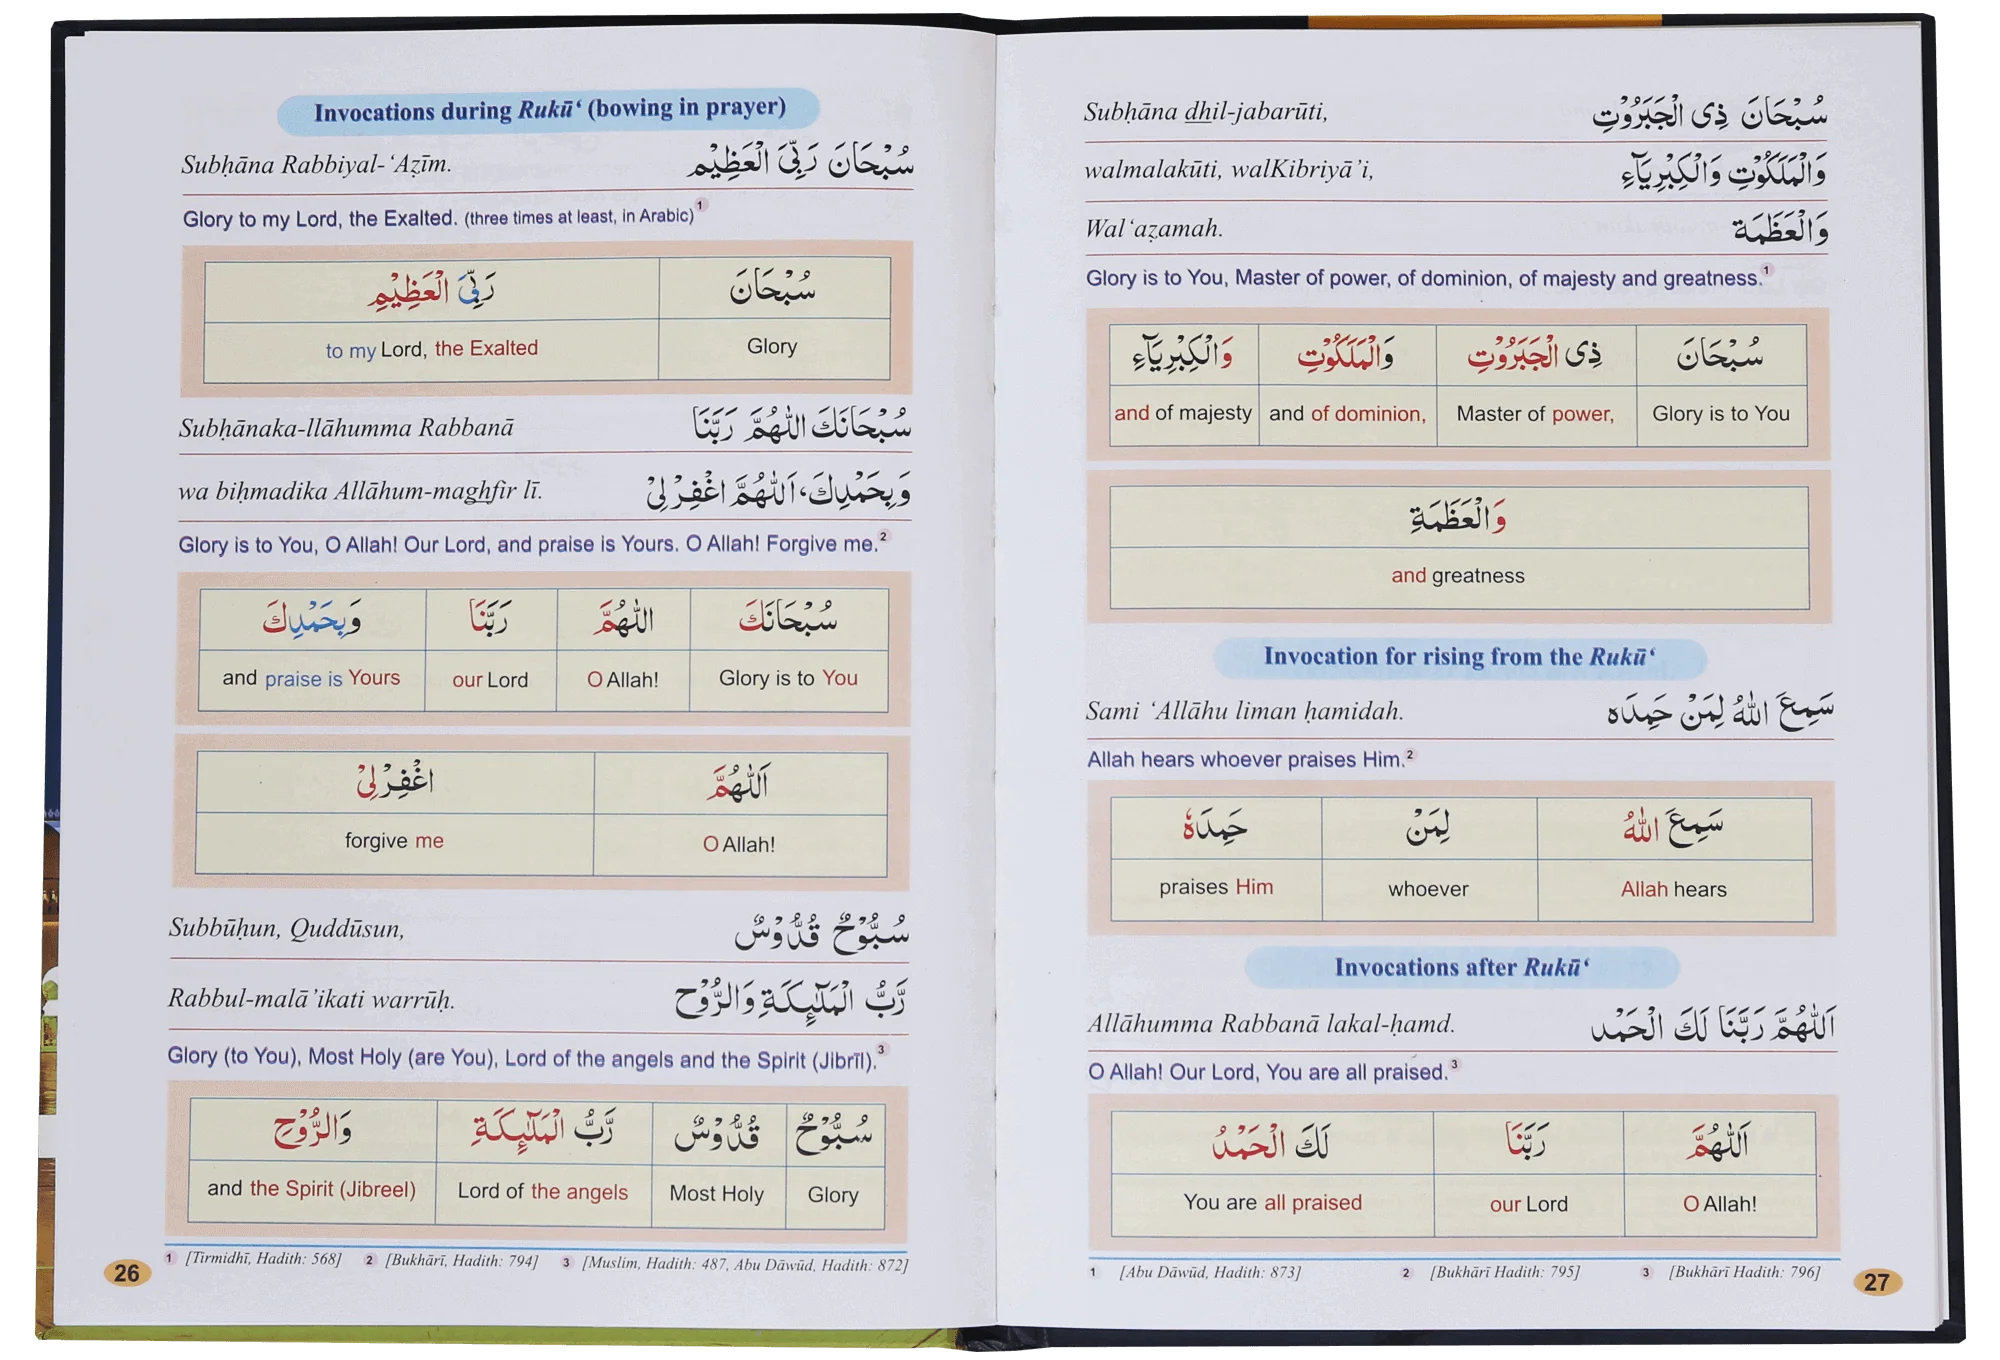 Invocations during Rukū‘ (bowing in prayer)
Subḥāna Rabbiyal-‘Aẓīm. سُبْحَانَ رَبِّيَ الْعَظِيْم
Glory to my Lord, the Exalted. (three times at least, in Arabic)1
سُبْحَانَ رَبِّيَ الْعَظِيْمِ
to my Lord, the Exalted Glory
Subḥānaka-llāhumma Rabbanā سُبْحَانَكَ اللّٰهُمَّ رَبَّنَا
wa biḥmadika Allāhum-maghfir lī. وَبِحَمْدِكَ، اَللّٰهُمَّ اغْفِرْ لِيْ
Glory is to You, O Allah! Our Lord, and praise is Yours. O Allah! Forgive me.2
سُبْحَانَكَ اللّٰهُمَّ رَبَّنَا وَبِحَمْدِكَ
and praise is Yours our Lord O Allah! Glory is to You
اَللّٰهُمَّ اغْفِرْ لِيْ
forgive me O Allah!
Subbūḥun, Quddūsun, سُبُّوْحٌ قُدُّوْسٌ
Rabbul-malā’ikati warrūḥ. رَّبُّ الْمَلٰٓئِكَةِ وَالرُّوْح
Glory (to You), Most Holy (are You), Lord of the angels and the Spirit (Jibrīl).3
سُبُّوْحٌ قُدُّوْسٌ رَّبُّ الْمَلٰٓئِكَةِ وَالرُّوْحِ
and the Spirit (Jibreel) Lord of the angels Most Holy Glory
1 [Tirmidhī, Hadith: 568] 2 [Bukhārī, Hadith: 794] 3 [Muslim, Hadith: 487, Abu Dāwūd, Hadith: 872]
26
Subḥāna dhil-jabarūti, سُبْحَانَ ذِى الْجَبَرُوْتِ
walmalakūti, walKibriyā’i, وَالْمَلَكُوْتِ وَالْكِبْرِيَآءِ
Wal‘aẓamah. وَالْعَظَمَة
Glory is to You, Master of power, of dominion, of majesty and greatness.1
سُبْحَانَ ذِى الْجَبَرُوْتِ وَالْمَلَكُوْتِ وَالْكِبْرِيَآءِ
and of majesty and of dominion, Master of power, Glory is to You
وَالْعَظَمَةِ
and greatness
Invocation for rising from the Rukū‘
Sami ‘Allāhu liman ḥamidah. سَمِعَ اللهُ لِمَنْ حَمِدَه
Allah hears whoever praises Him.2
سَمِعَ اللهُ لِمَنْ حَمِدَهٗ
praises Him whoever Allah hears
Invocations after Rukū‘
Allāhumma Rabbanā lakal-ḥamd. اَللّٰهُمَّ رَبَّنَا لَكَ الْحَمْد
O Allah! Our Lord, You are all praised.3
اَللّٰهُمَّ رَبَّنَا لَكَ الْحَمْدُ
You are all praised our Lord O Allah!
1 [Abu Dāwūd, Hadith: 873] 2 [Bukhārī Hadith: 795] 3 [Bukhārī Hadith: 796]
27